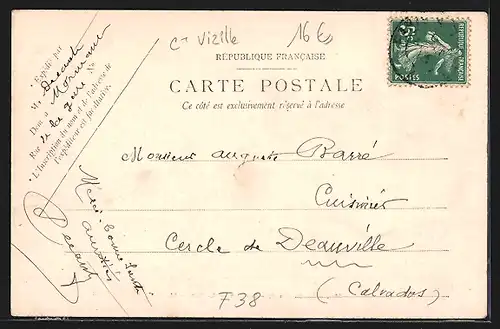 Ct Vizille 16E
RÉPUBLIQUE FRANÇAISE
CARTE POSTALE
Ce côté est exclusivement réservé à l'adresse
5c
POSTES
Expédié par
M. Decaux
Dem à Mormant
Rue de la Gare No
L'Inscription du nom et de l'adresse de
l'expéditeur est facultative.
Monsieur Auguste Barré
Cuisinier
Cercle de Deauville
(Calvados)
Merci bonne Santé
amitiés
Decaux
F38